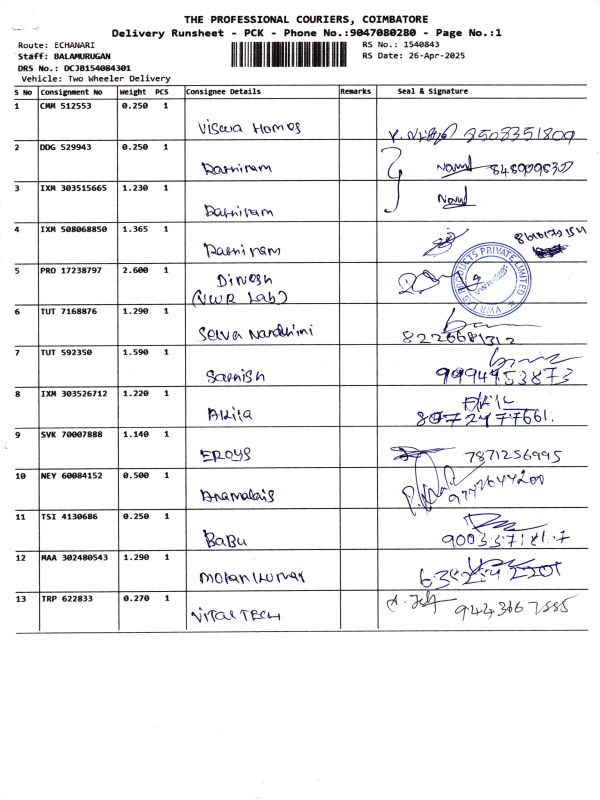 THE PROFESSIONAL COURIERS, COIMBATORE
Delivery Runsheet - PCK - Phone No.:9047080280 - Page No.:1
Route: ECHANARI RS No.: 1540843
Staff: BALAMURUGAN RS Date: 26-Apr-2025
DRS No.: DCJB154084301
Vehicle: Two Wheeler Delivery
S No Consignment No Weight PCS Consignee Details Remarks Seal & Signature
1 CMM 512553 0.250 1 Viswa Homes
2 DDG 529943 0.250 1
3 IXM 303515665 1.230 1
4 IXM 508068850 1.365 1
5 PRO 17238797 2.600 1 Dinesh
(VWR Lab)
PRODUCTS PRIVATE LIMITED
6 TUT 7168876 1.290 1 8226681312
7 TUT 592350 1.590 1 Sathish 9994953873
8 IXM 303526712 1.220 1 Akila
9 SVK 70007888 1.140 1 EROYS 7871256995
10 NEY 60084152 0.500 1
11 TSI 4130686 0.250 1 BABU
12 MAA 302480543 1.290 1 mohan kumar
13 TRP 622833 0.270 1 VITAL TECH